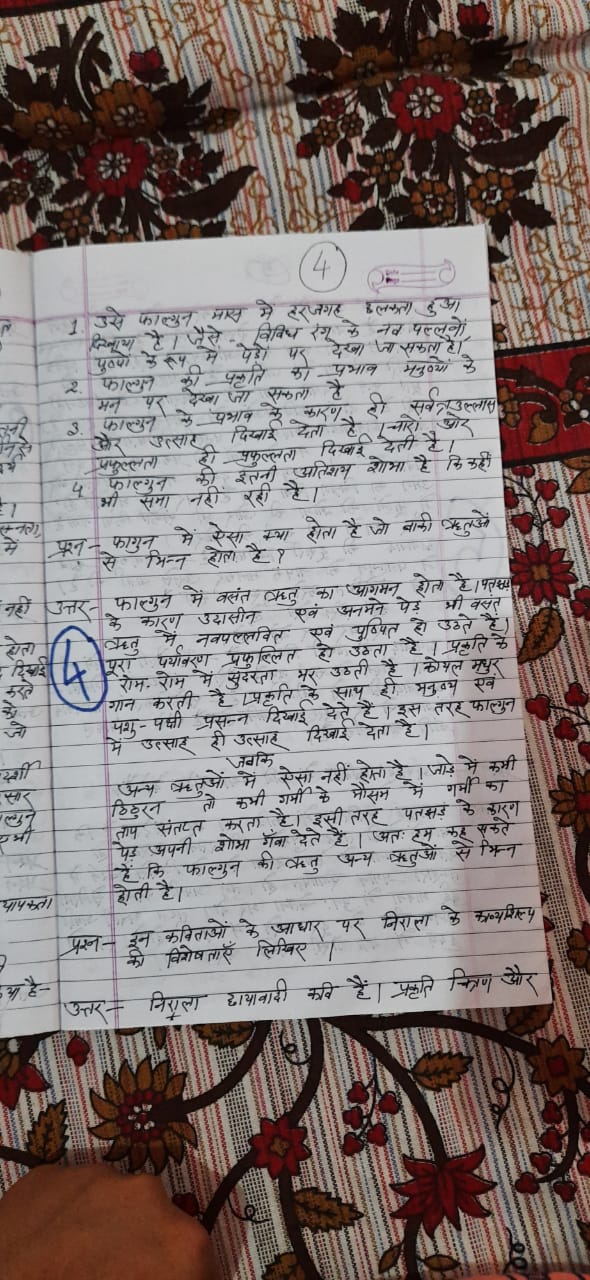 4
1. उसे फाल्गुन मास में हरजगह झलकता हुआ
दिखाया है। जैसे - विविध रंग के नव पल्लवों
पुष्पों के रूप में पेड़ो पर देखा जा सकता है।
2. फाल्गुन की प्रकृति का प्रभाव मनुष्यों के
मन पर देखा जा सकता है
3. फाल्गुन के प्रभाव के कारण ही सर्वत्र उल्लास
और उत्साह दिखाई देता है। चारो और
प्रफुल्लता ही प्रफुल्लता दिखाई देती है।
4 फाल्गुन की इतनी अतिशय शोभा है कि कहीं
भी समा नहीं रही है।
प्रश्न - फागुन में ऐसा क्या होता है जो बाकी ऋतुओं
से भिन्न होता है?
उत्तर - फाल्गुन में वसंत ऋतु का आगमन होता है। पतझड़
के कारण उदासीन एवं अनमने पेड़ भी वसंत
ऋतु में नवपल्लवित एवं पुष्पित हो उठते है।
4
पूरा पर्यावरण प्रफुल्लित हो उठता है। प्रकृति के
रोम-रोम में सुंदरता भर उठती है। कोयल मधुर
गान करती है। प्रकृति के साथ ही मनुष्य एवं
पशु-पक्षी प्रसन्न दिखाई देते है। इस तरह फाल्गुन
में उत्साह ही उत्साह दिखाई देता है।
जबकि
अन्य ऋतुओं में ऐसा नहीं होता है। जाड़े में कभी
ठिठुरन तो कभी गर्मी के मौसम में गर्मी का
ताप संतप्त करता है। इसी तरह पतझड़ के कारण
पेड़ अपनी शोभा गँवा देते है। अतः हम कह सकते
है कि फाल्गुन की ऋतु अन्य ऋतुओं से भिन्न
होती है।
प्रश्न - इन कविताओं के आधार पर निराला के काव्यशिल्प
की विशेषताएँ लिखिए।
उत्तर - निराला छायावादी कवि हैं। प्रकृति चित्रण और